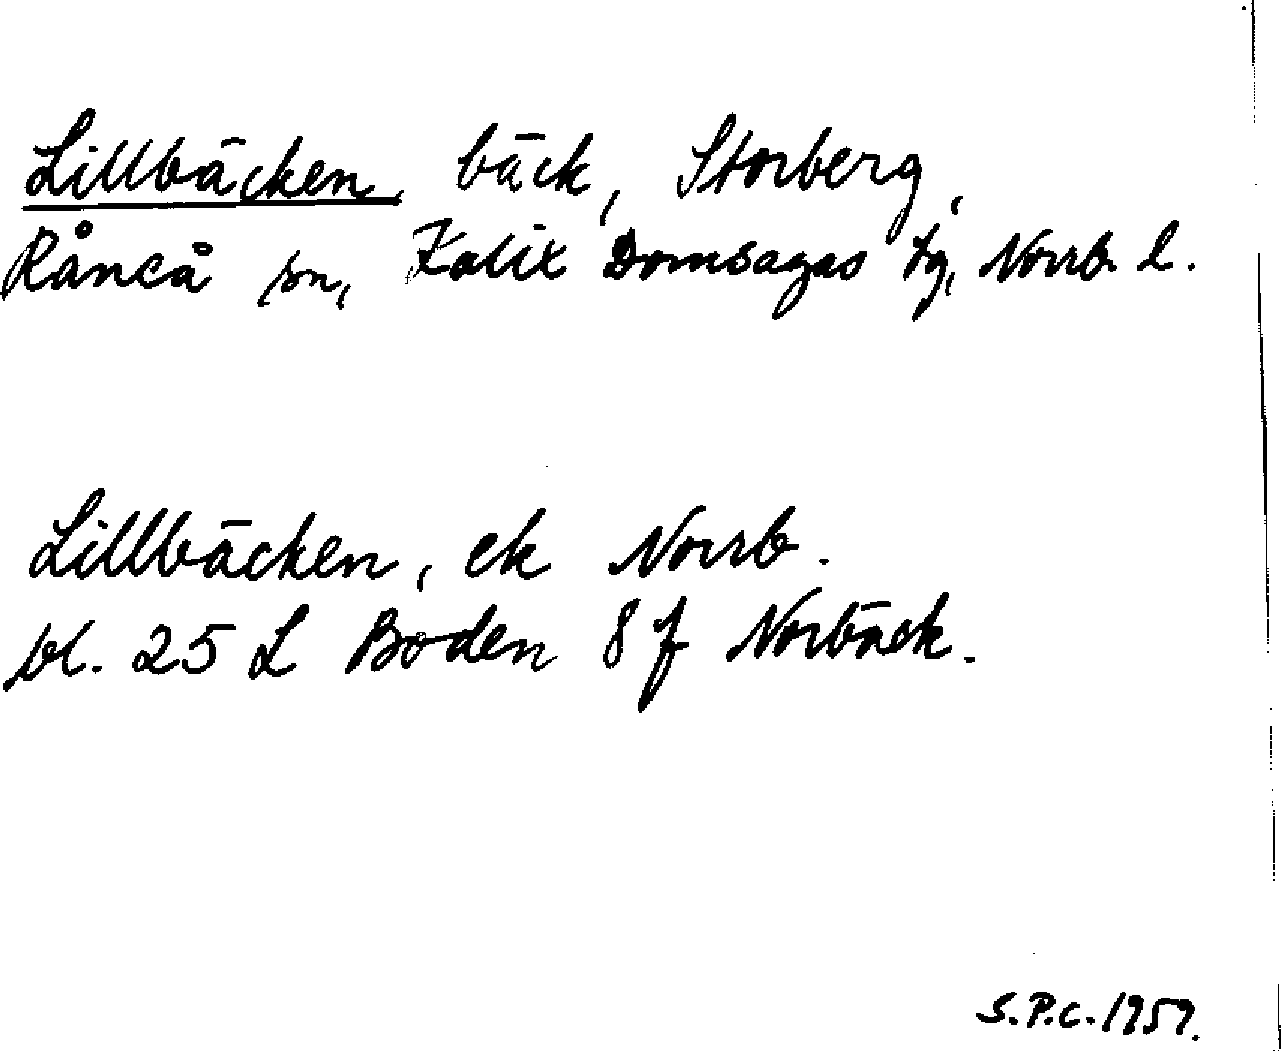 Lillbäcken, bäck, Storberg,
Råneå sn, Kalix Domsagas tg, Norrb. l.
Lillbäcken, ek Norrb.
bl. 25 L Boden 8 f Norbäck.
S.P.C. 1959.